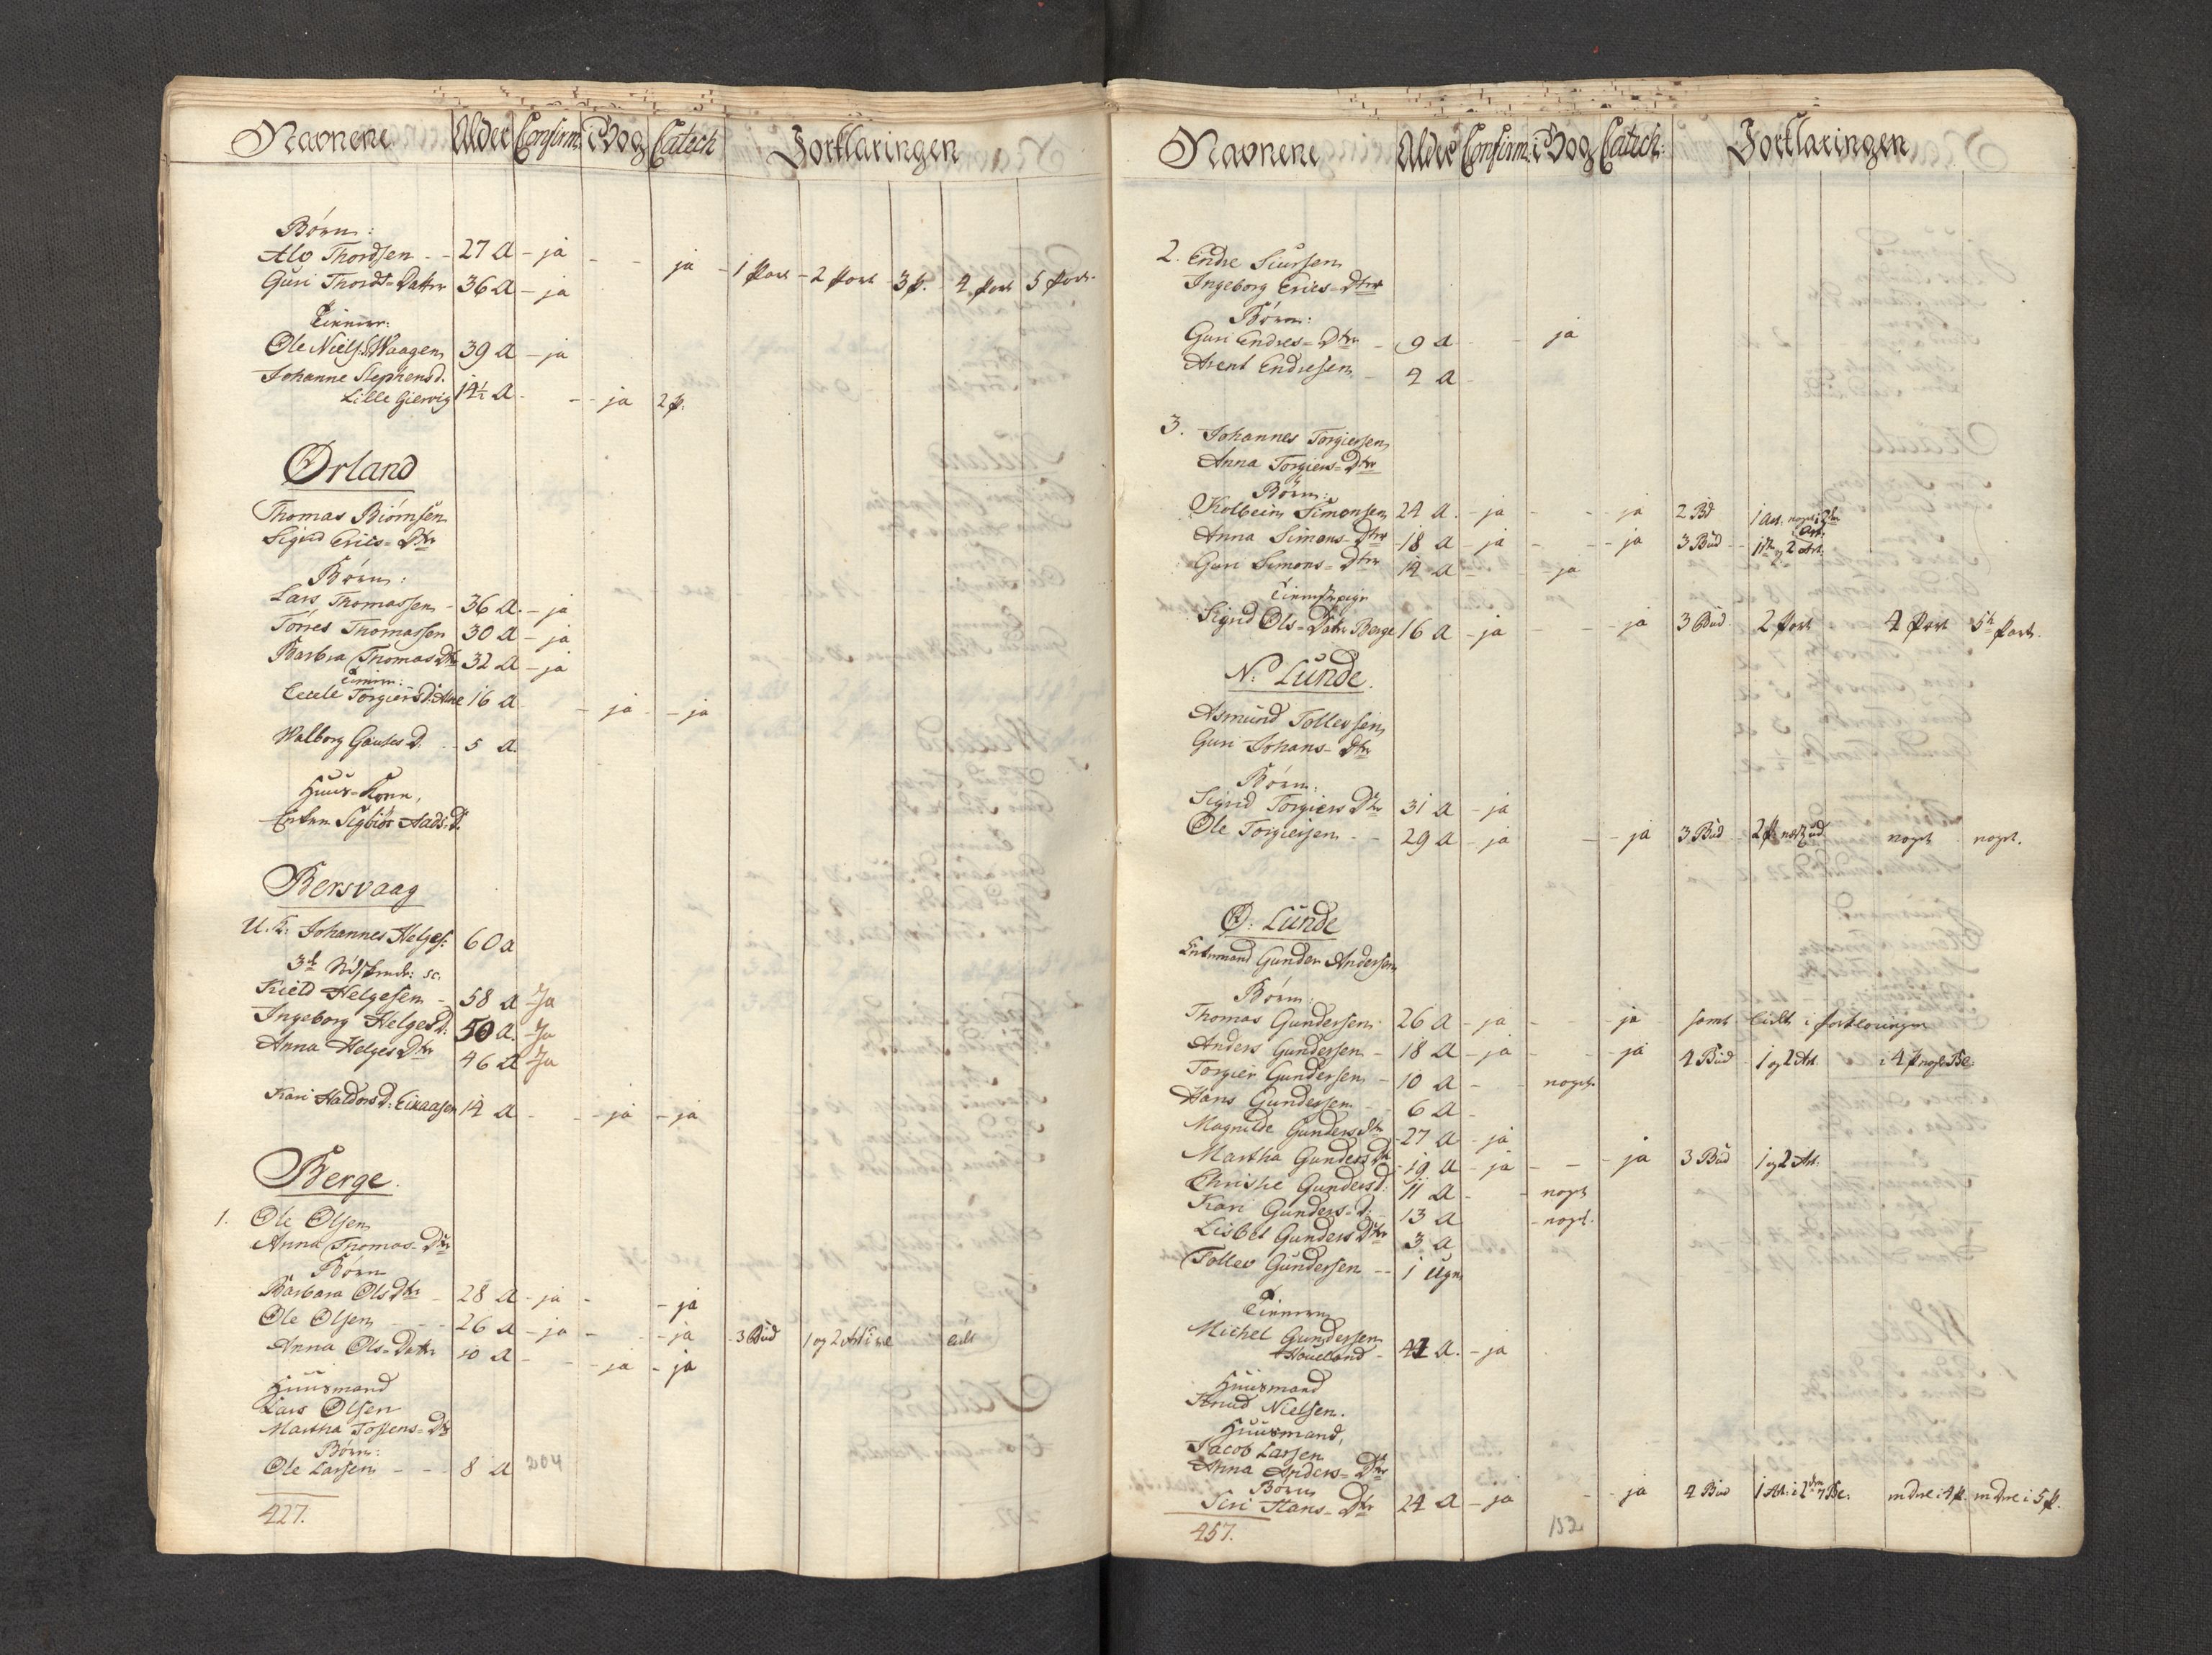 Navnene Alder Confirm: i Bog Catech Forklaringen
Børn:
Alv Thordsen - - 27 A - ja - - ja - 1 Part - 2 Part 3 P. 4 Part 5 Part
Guri Thords=Datter 36 A - ja
Tienner:
Ole Niels: Waagen 39 A - ja
Johanne Stephensd.
Lille Giervig 14½ A - - - ja 2 P.
Ørland
Thomas Biørnsen
Sigrid Erics=Dtr
Børn:
Lars Thomassen - 36 A. - ja
Torres Thomassen 30 A - ja
Barbra Thomas Dtr 32 A - ja
Tienner:
Cecele Torgiers D. 16 A - ja - - ja
Walborg Gautes D. - 5 A.
Huus=Kone,
Enken Sigbiør Aads: D.
Bersvaag
U. K. Johannes Helges: 60 a
Kield Helgesen - 58 A Ja
Ingeborg Helges D: 50 A. Ja
Anna Helges Dtr 46 A Ja
Kari Haldors d: Eikaasen 14 A - - - ja - ja
Berge.
1. Ole Olsen
Anna Thomas=Dtr
Børn
Barbara Ols Dtr - 28 A - ja - - ja
Ole Olsen - - - 26 A - ja - - - ja - 3 Bud 1 og 2 Art
Anna Ols=Datter 10 A - - - ja - ja
Huusmand
Lars Olsen
Martha Tostens=Dtr
Børn:
Ole Larsen - - - 8 A 204
427.
Navnene Alder Confirm: i Bog Catech: Forklaringen
2. Endre Siursen
Ingeborg Erics=Dtter
Børn:
Guri Endres=Dtr - 9 A - - ja
Arent Endresen - 4 A
3. Johannes Torgiersen
Anna Torgiers=Dtr
Børn:
Kolbein Simonsen 24 A. - ja - - ja 2 Bd 1 Art. noget i 2den Art.
Anna Simons=Dtter 18 A - ja - - - ja 3 Bud - 1ste og 2 Art.
Guri Simons=Dtter 14 A - - - ja
Tienistepige
Sigrid Ols=Datter Berge 16 A - ja - - - ja 3 Bud 2 Part 4 Part 5te Part.
N. Lunde.
Asmund Tollevsen
Guri Johans=Dtr
Børn:
Sigrid Torgiers Dtr 31 A - ja
Ole Torgiersen - - 29 A - ja - - ja 3 Bud 2 P. næst ud noget noget.
Ø: Lunde
Enkemand Gunder Andersen
Børn:
Thomas Gundersen 26 A - ja - - - ja samt lidt i Forklaringen
Anders Gundersen - 18 A - ja - - - ja 4 Bud 1 og 2 Art. i 4 P noget Be:
Torgier Gundersen - 10 A - - noget
Hans Gundersen - 6 A -
Magnilde Gunders Dtr - 27 A - ja
Martha Gunders Dtr 19 A - ja - - - ja 3 Bud 1 og 2 Art.
Christie Gunders d: 11 A - - noget
Kari Gunders=d. 13 A - noget.
Lisbet Gunders Dtr 3 A
Tollev Gundersen - - 1 Ugn
Tiennere
Michel Gundersen
Houeland - 41 A. - ja
Huusmand
Knud Nielsen.
Huusmand,
Jacob Larsen
Anna Anders=Dtr
Børn
Siri Hans=Dtr 24 A - ja - - ja 4 Bud 1 Art: i 2den Be: mdre i 4 P. mdre i 5 P.
457. 152